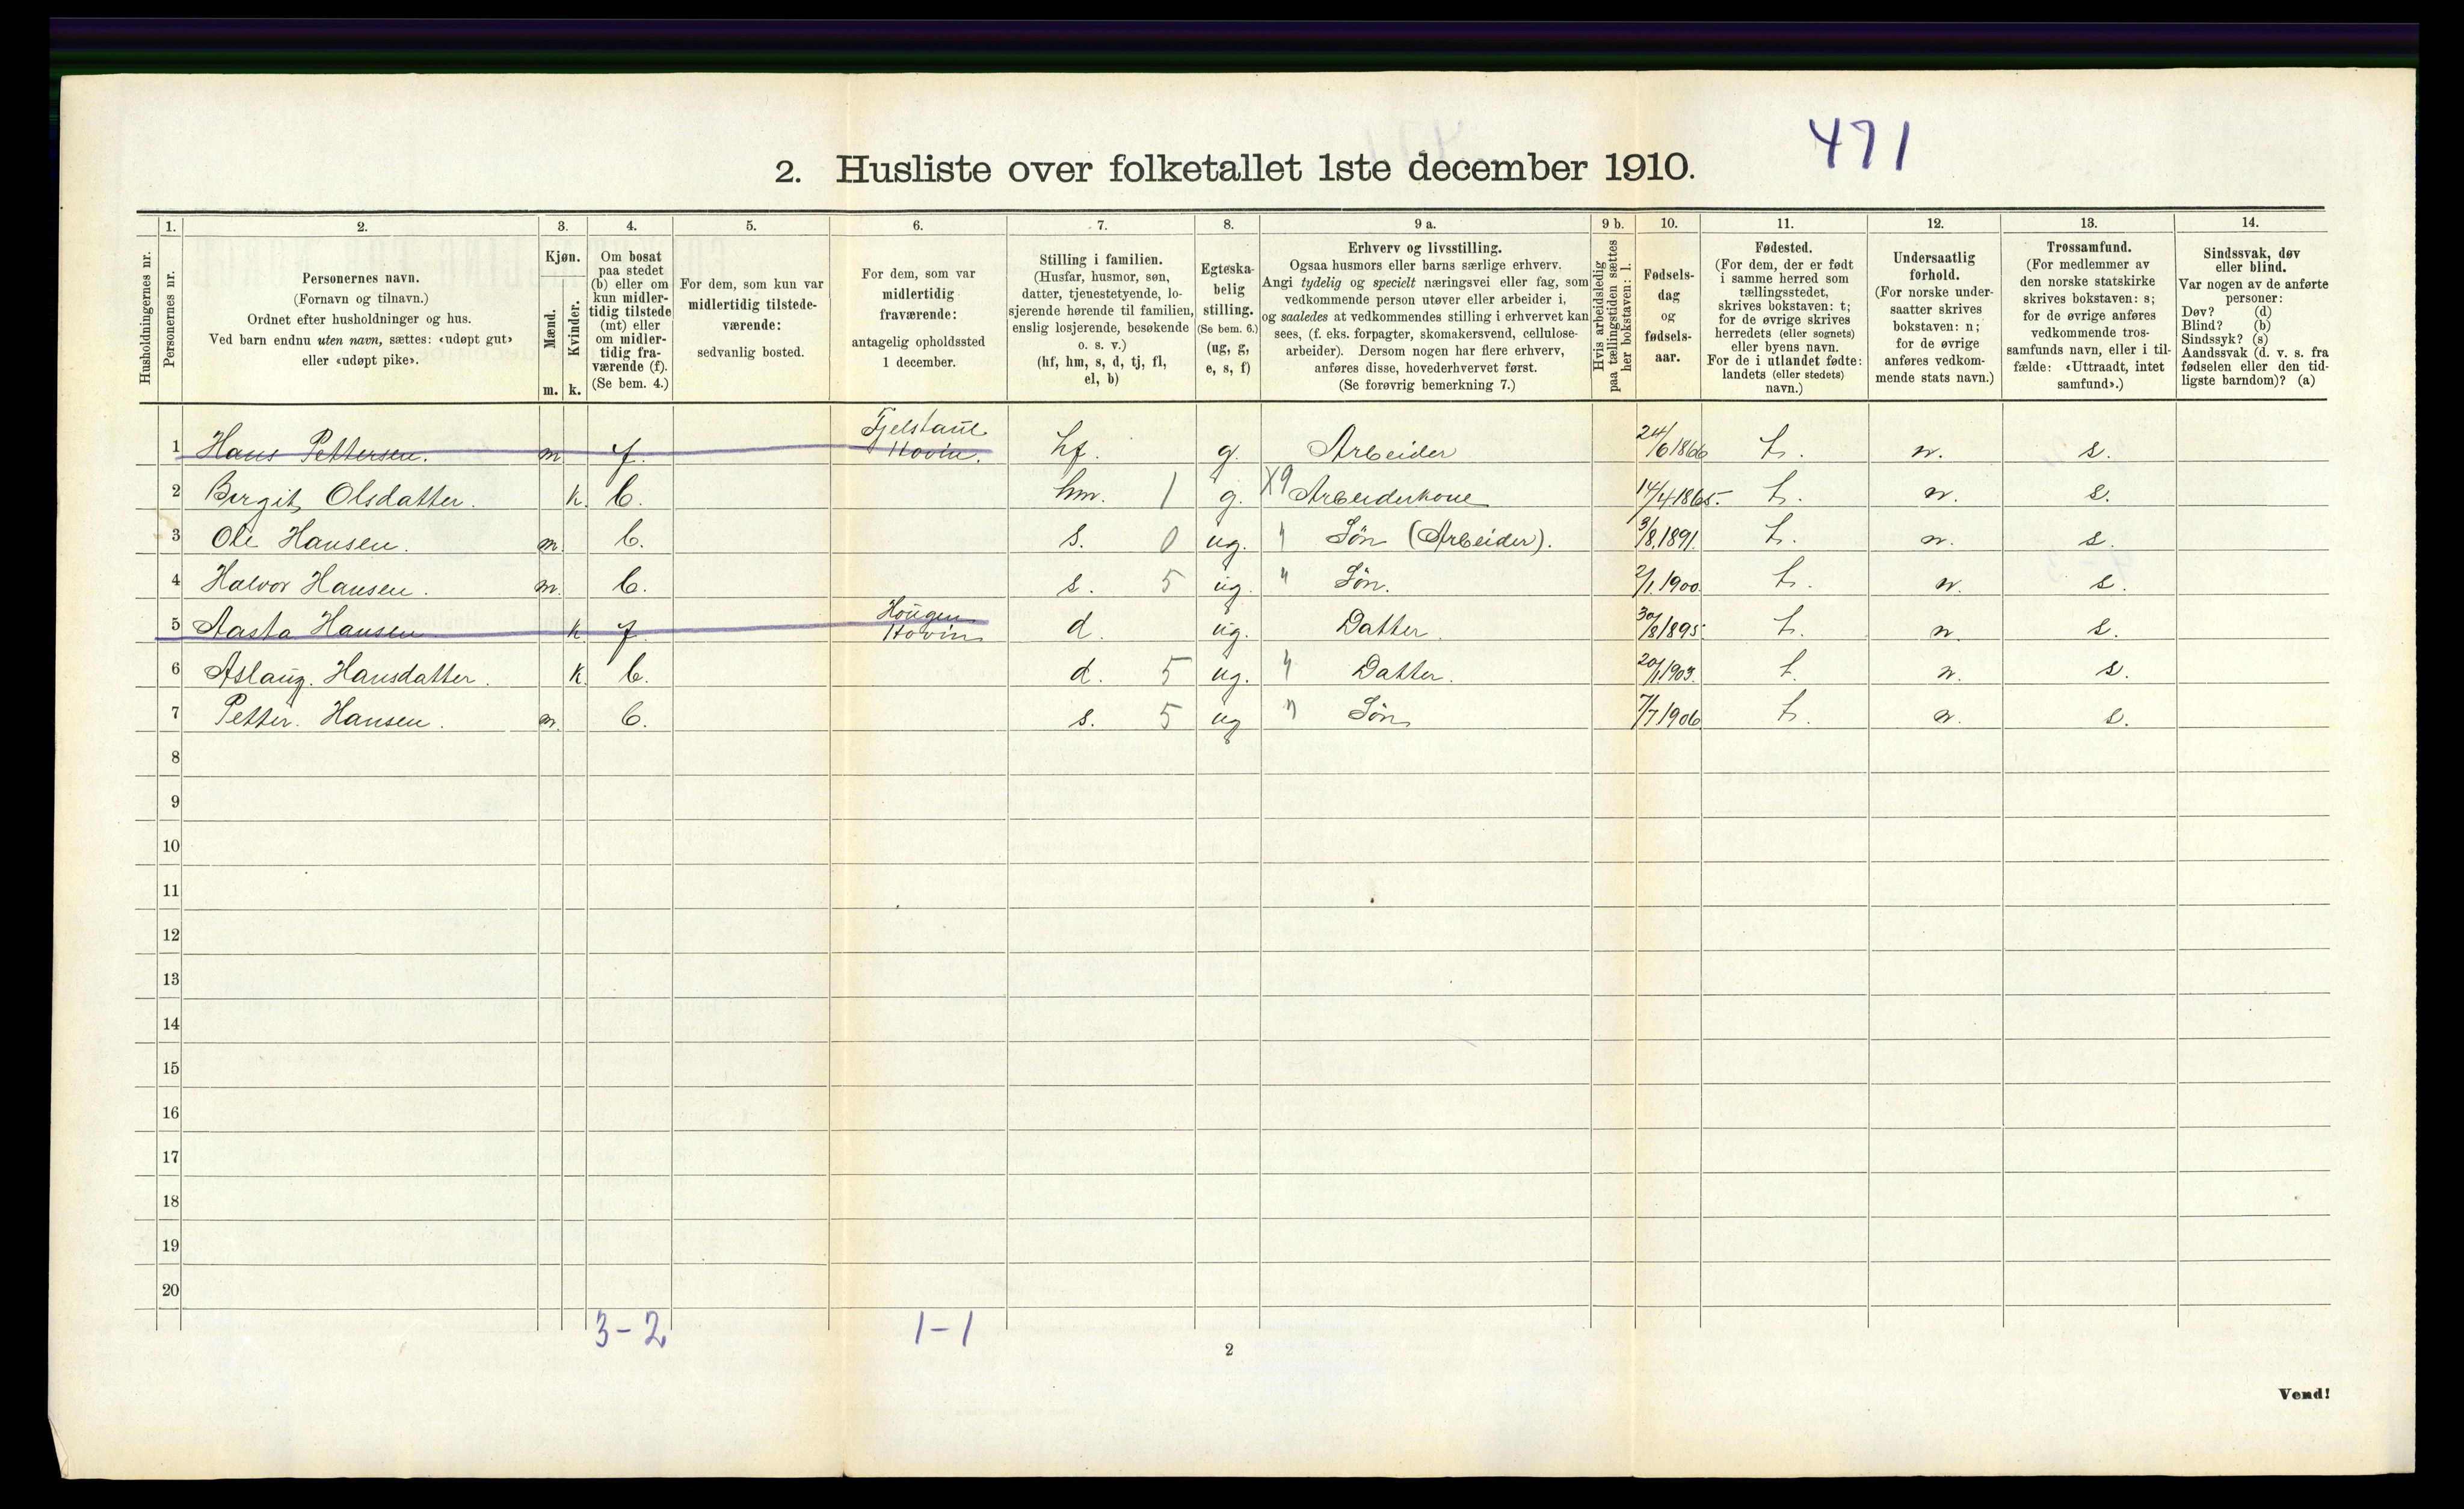 471
2. Husliste over folketallet 1ste december 1910.
1. 2. 3. 4. 5. 6. 7. 8. 9 a. 9 b. 10. 11. 12. 13. 14.
Husholdningernes nr.
Personernes nr.
Personernes navn.
(Fornavn og tilnavn.)
Ordnet efter husholdninger og hus.
Ved barn endnu uten navn, sættes: «udøpt gut»
eller «udøpt pike».
Kjøn.
Mænd.
Kvinder.
m. k.
Om bosat
paa stedet
(b) eller om
kun midler-
tidig tilstede
(mt) eller
om midler-
tidig fra-
værende (f).
(Se bem. 4.)
For dem, som kun var
midlertidig tilstede-
værende:
sedvanlig bosted.
For dem, som var
midlertidig
fraværende:
antagelig opholdssted
1 december.
Stilling i familien.
(Husfar, husmor, søn,
datter, tjenestetyende, lo-
sjerende hørende til familien,
enslig losjerende, besøkende
o. s. v.)
(hf, hm, s, d, tj, fl,
el, b)
Egteska-
belig
stilling.
(Se bem. 6.)
(ug, g,
e, s, f)
Erhverv og livsstilling.
Ogsaa husmors eller barns særlige erhverv.
Angi tydelig og specielt næringsvei eller fag, som
vedkommende person utøver eller arbeider i,
og saaledes at vedkommendes stilling i erhvervet kan
sees, (f. eks. forpagter, skomakersvend, cellulose-
arbeider). Dersom nogen har flere erhverv,
anføres disse, hovederhvervet først.
(Se forøvrig bemerkning 7.)
Hvis arbeidsledig
paa tællingstiden sættes
her bokstaven: l.
Fødsels-
dag
og
fødsels-
aar.
Fødested.
(For dem, der er født
i samme herred som
tællingsstedet,
skrives bokstaven: t;
for de øvrige skrives
herredets (eller sognets)
eller byens navn.
For de i utlandet fødte:
landets (eller stedets)
navn.)
Undersaatlig
forhold.
(For norske under-
saatter skrives
bokstaven: n;
for de øvrige
anføres vedkom-
mende stats navn.)
Trossamfund.
(For medlemmer av
den norske statskirke
skrives bokstaven: s;
for de øvrige anføres
vedkommende tros-
samfunds navn, eller i til-
fælde: «Uttraadt, intet
samfund».)
Sindssvak, døv
eller blind.
Var nogen av de anførte
personer:
Døv? (d)
Blind? (b)
Sindssyk? (s)
Aandssvak (d. v. s. fra
fødselen eller den tid-
ligste barndom)? (a)
1 Hans Pettersen. m f. Hovin. hf. g. Arbeider 24/6 1866 t. n. s.
2 Birgit Olsdatter. k. b. hm. 1 g. X9 Arbeiderkone 14/4 1865. t. n. s.
3 Ole Hansen. m. b. s. 0 ug. " Søn (Arbeider). 3/8 1891. t. n. s.
4 Halvor Hansen. m. b. s. 5 ug. " Søn. 2/1 1900. t. n. s.
5 Aasta Hansen k. f. Hougen Hovin d. ug. Datter. 30/8 1895. t. n. s.
6 Aslaug. Hansdatter. k. b. d. 5 ug. " Datter. 20/1 1903. t. n. s.
7 Petter. Hansen. m. b. s. 5 ug " Søn 7/7 1906 t. n. s.
8
9
10
11
12
13
14
15
16
17
18
19
20
3-2 1-1
2
Vend!